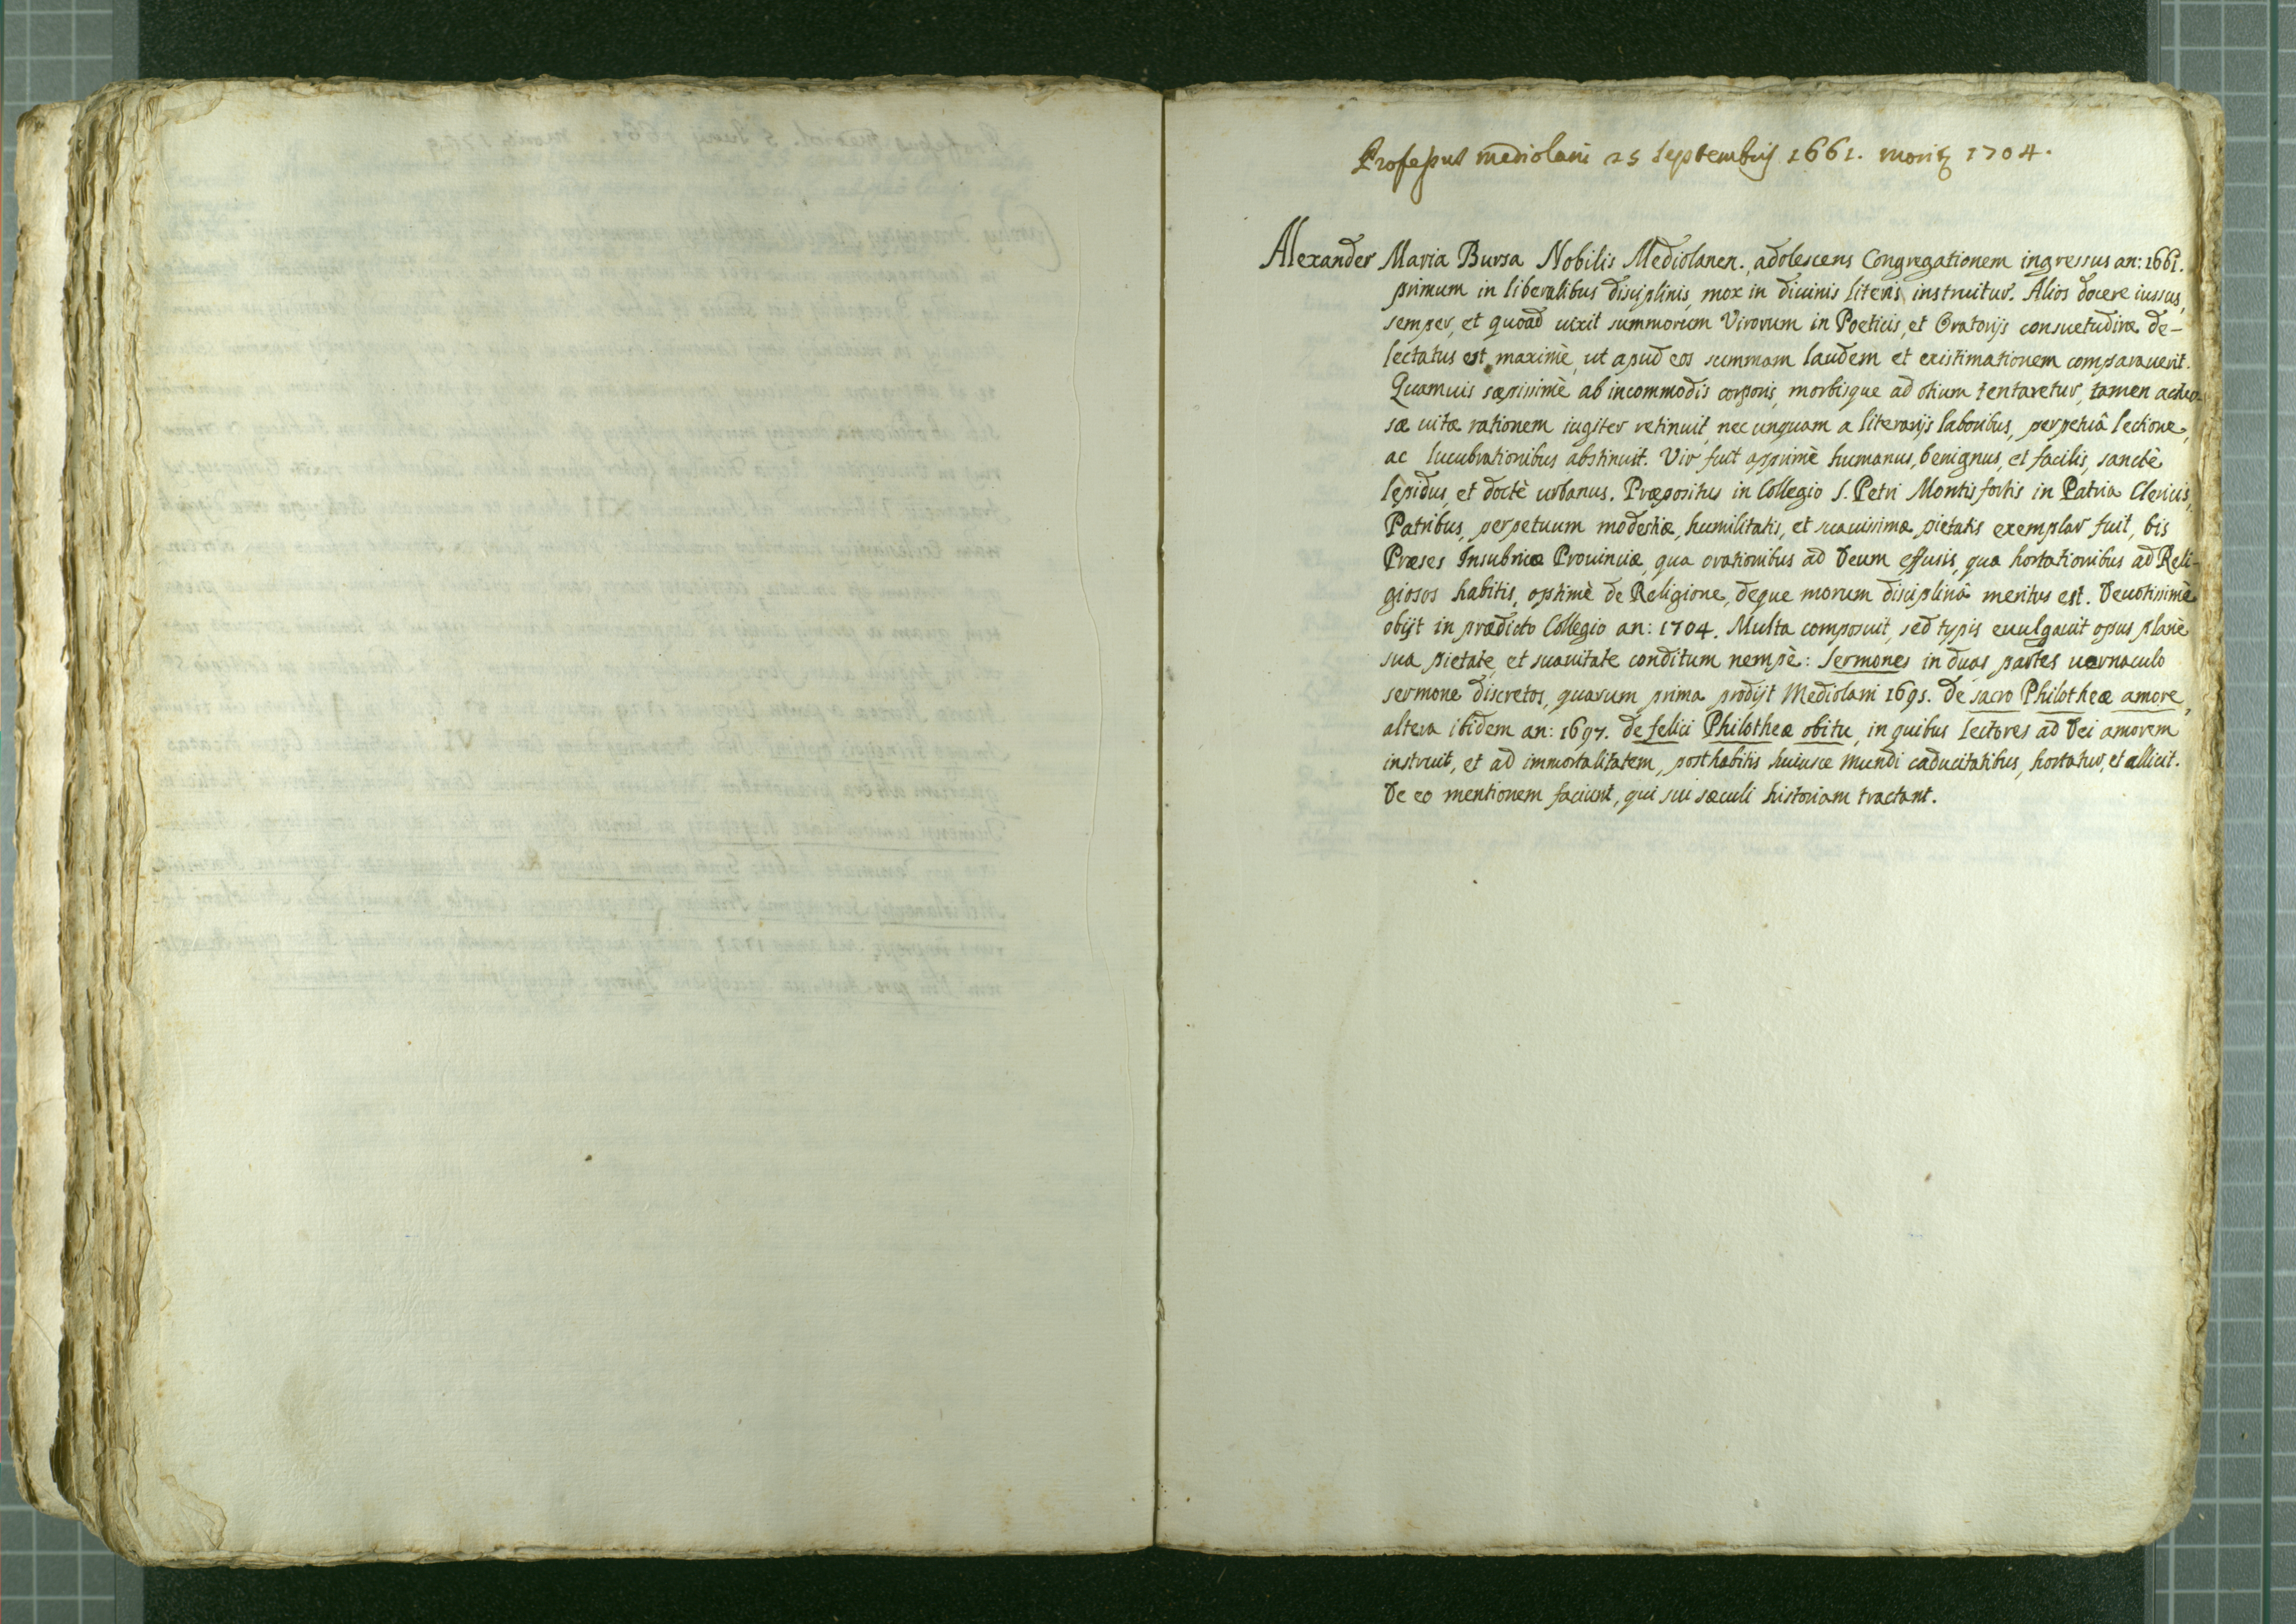 Professus Mediolani 25 Septembris 1661. morit 1704.
Alexander Maria Bursa Nobilis Mediolanen. adolescens Congregationem ingressus an: 1661.
primum in liberalibus disciplinis, mox in diuinis literis instruitur. Alios docere iussus,
semper, et quoad uixit summorum Virorum in Poeticis, et Oratorijs consuetudine de-
lectatus est maximè, ut apud eos summam laudem et existimationem comparauerit.
Quamuis sæpissimè ab incommodis corporis, morbisque ad otium tentaretur, tamen
sæ uitæ rationem iugiter retinuit, nec unquam a literarijs laboribus, perpetuâ lectione,
ac lucubrationibus abstinuit. Vir fuit apprimè humanus, benignus, et facilis, sanctè
lepidus, et doctè urbanus. Præpositus in Collegio S. Petri Montis fortis in Patria Clericis,
Patribus, perpetuum modestiæ, humilitatis, et suauissimæ pietatis exemplar fuit, bis
Præses Insubriæ Prouinciæ, qua orationibus ad Deum effusis, qua hortationibus ad Reli-
giosos habitis, optimè de Religione, deque morum disciplinâ meritus est. Deuotissimè
obijt in prædicto Collegio an: 1704. Multa composuit, sed typis euulgauit opus planè
sua pietate, et suauitate conditum nempè: Sermones in duas partes uernaculo
sermone discretos, quarum prima prodijt Mediolani 1695. De sacro Philotheæ amore,
altera ibidem an: 1697. de felici Philotheæ obitu, in quibus lectores ad Dei amorem
instruit, et ad immortalitatem, posthabitis huiusce Mundi caducitatibus, hortatur, et allicit.
De eo mentionem faciunt, qui sui sæculi historiam tractant.